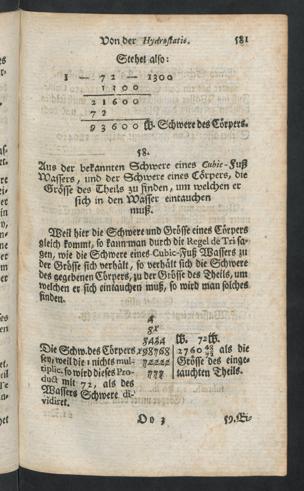 Von der Hydrostatic. 581
Stehet also:
1 — 72 — 1300
1300
21600
72
93600 ℔. Schwere des Cörpers.
58.
Aus der bekannten Schwere eines Cubic-Fuß
Wassers, und der Schwere eines Cörpers, die
Grösse des Theils zu finden, um welchen er
sich in den Wasser eintauchen
muß.
Weil hier die Schwere und Grösse eines Cörpers
gleich kommt, so kann man durch die Regel de Tri sa-
gen, wie die Schwere eines Cubic-Fuß Wassers zu
der Grösse sich verhält, so verhält sich die Schwere
des gegebenen Cörpers, zu der Grösse des Theils, um
welchen er sich eintauchen muß, so wird man solches
finden.
4
8434 ℔. 72℔.
Die Schw. des Cörpers 198768 2760 als die
sey, weil die 1 nichts mul- 72222 Grösse des einge-
tiplic. so wird dieses Pro- 777 tauchten Theils.
duct mit 72, als des
Wassers Schwere di-
vidiret.
Oo 3 59. Ei-